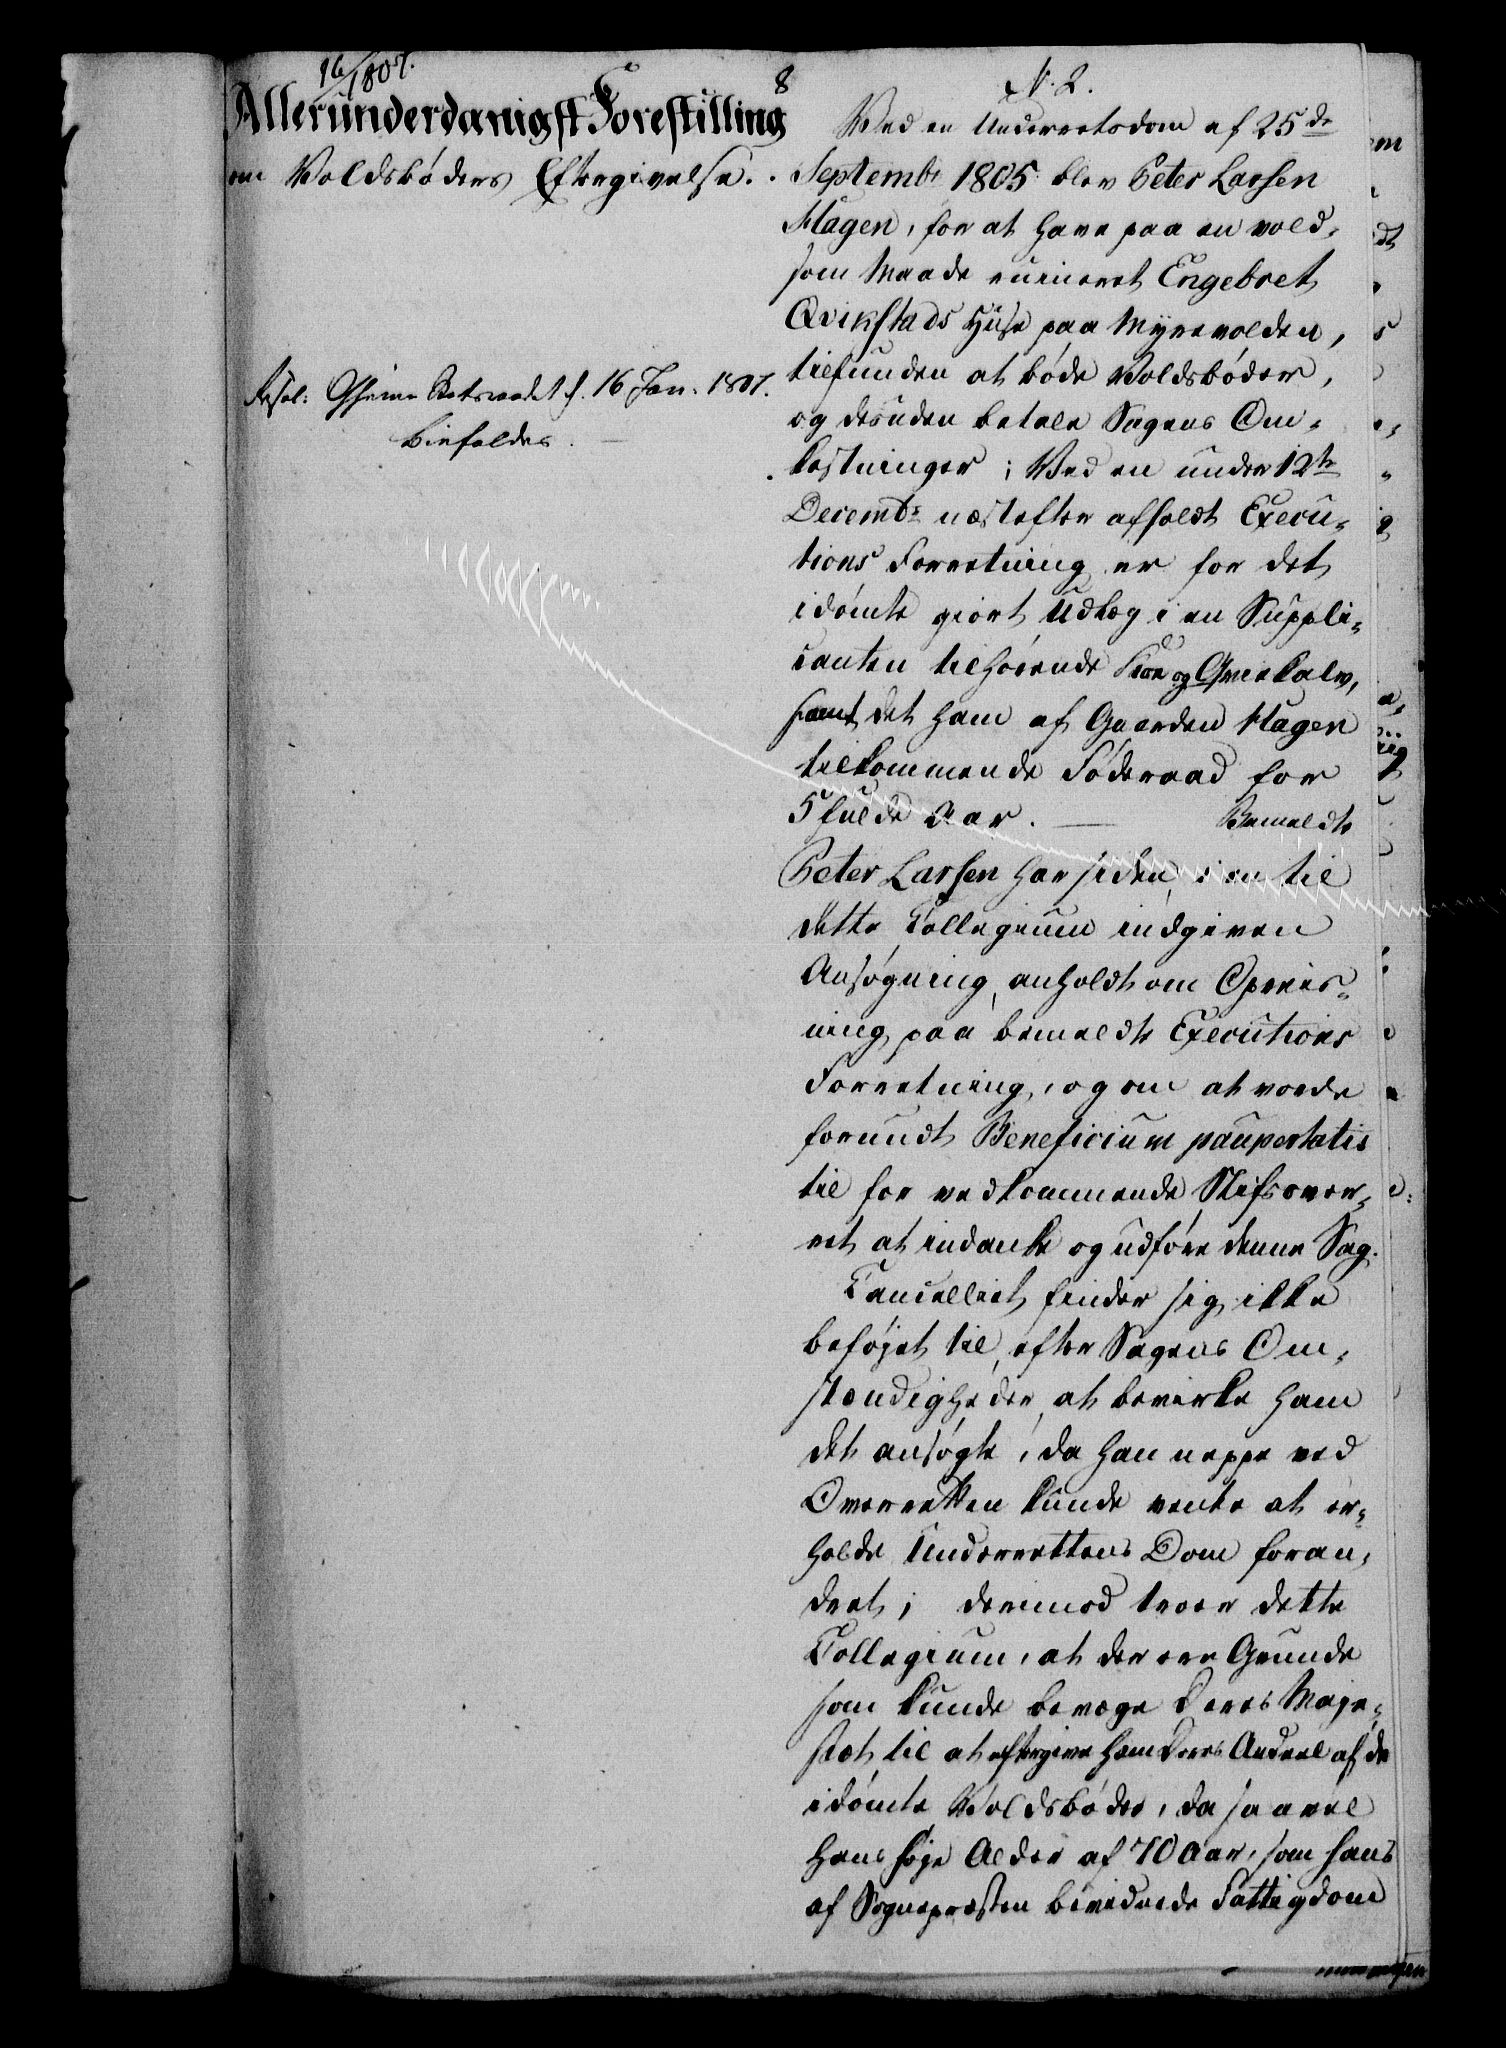 16/1807.
8
Allerunderdanigst Forestilling
om Voldsbøders Eftergivelse.
Resol: Geheime Statsraadet d. 16 Jan. 1807.
Bifaldes.
N. 2.
Ved en Underretsdom af 25de
Septembr 1805 blev Peter Larsen
Hagen, for at have paa en vold-
som Maade ruineret Engebret
Qvikstads Huse paa Myrevolden,
tilfunden at bøde Voldsbøder,
og desuden betale Sagens Om-
kostninger; Ved en under 12te
Decembr næstefter afholdt Execu-
tions Forretning er for det
idømte giort Udlæg i en Suppli-
canten tilhørende Koe og Qviekalv,
samt det ham af Gaarden Hagen
tilkommende Føderaad for
5 fulde Aar. — Bemeldte
Peter Larsen har siden i en til
dette Collegium indgiven
Ansøgning, anholdt om Opreis-
ning paa bemeldte Executions
Forretning, og om at vorde
forundt Beneficium paupertatis
til for vedkommende Stifsover-
ret at indanke og udføre denne Sag.
Cancelliet finder sig ikke
beføjet til, efter Sagens Om-
stændigheder, at bevirke ham
det ansøgte, da han neppe ved
Overretten kunde vente at er-
holde Underrettens Dom foran-
dret; derimod troer dette
Collegium, at der ere Grunde
som kunde bevæge Deres Maje-
stæt til at eftergive ham Deres Andeel af de
idømte Voldsbøder, da saavel
hans høje Alder af 70 Aar, som hans
af Sognepræsten bevidnede Fattigdom